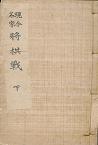 現今
名家
将棋戦
下